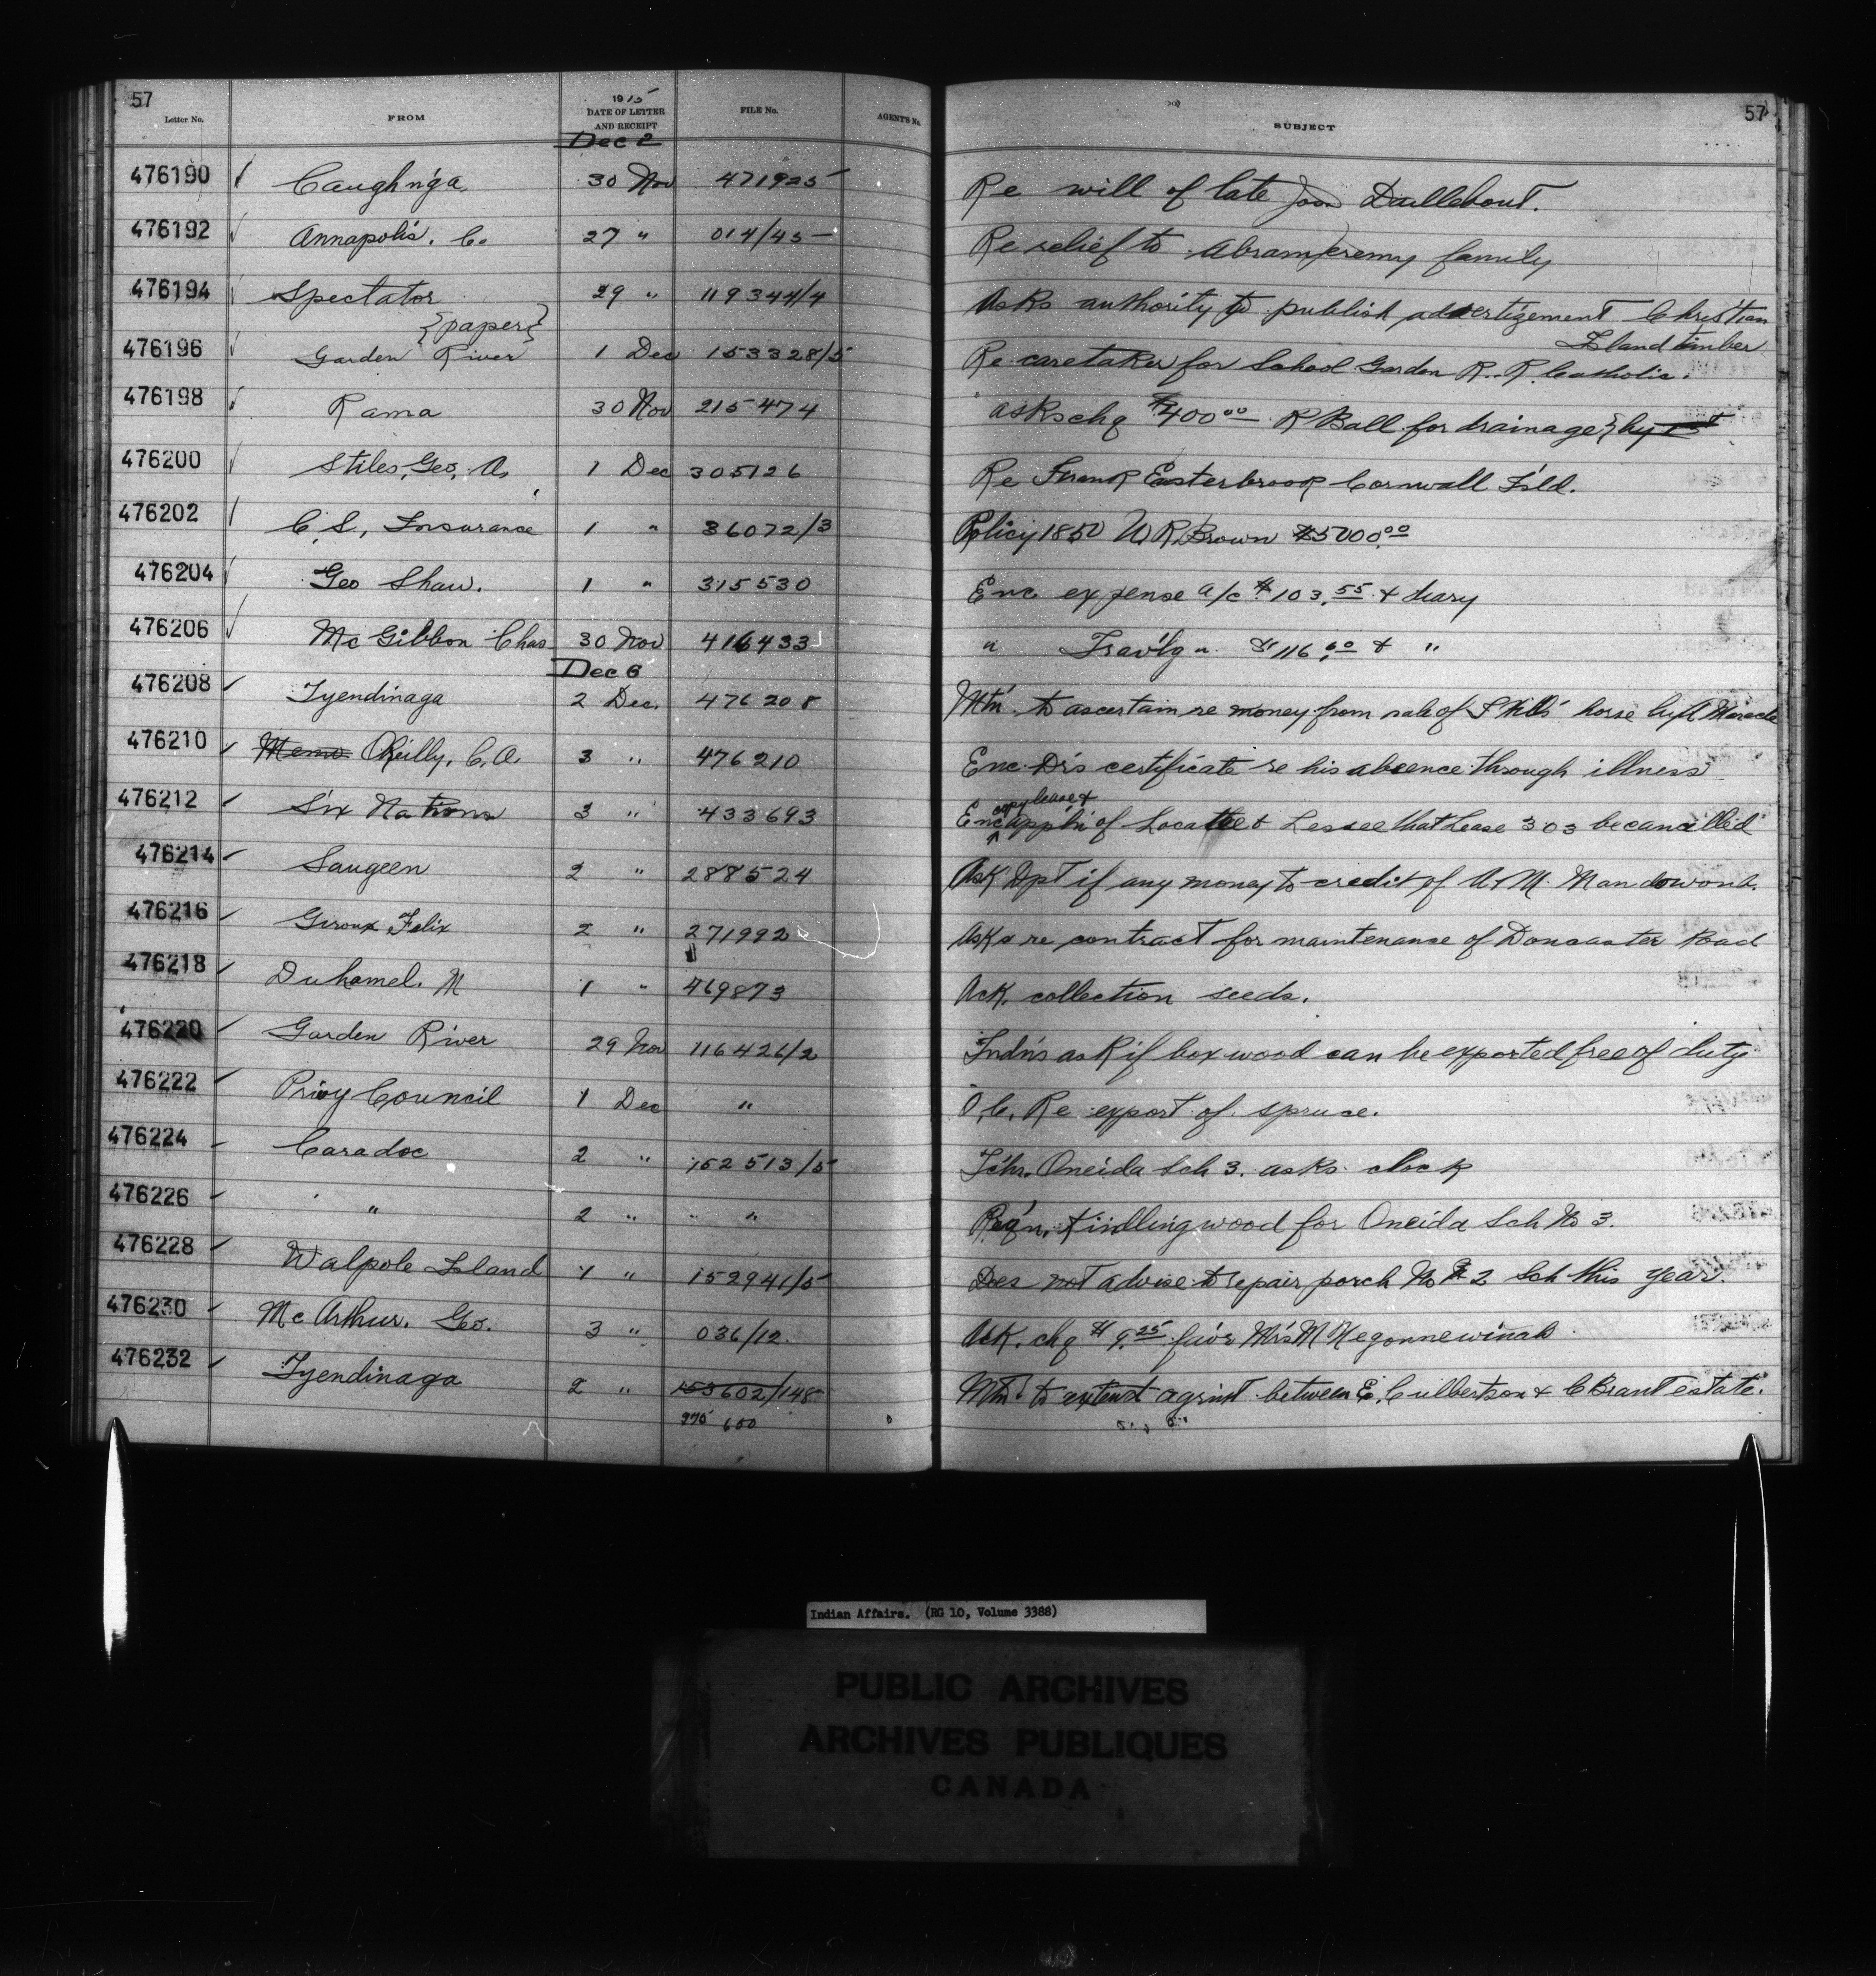 57
57
Letter No. FROM 1915 DATE OF LETTER AND RECEIPT FILE No. AGENT'S No. SUBJECT
Dec 2
476190 Caughn'ga 30 Nov 471925 Re will of late Daillebout.
476192 Annapolis. Co. 27 " 014/45 Re relief to Abram Jeremy family
476194 Spectator 29 " 119344/4 Asks authority to publish advertizement Christian
{paper} Island timber
476196 Garden River 1 Dec 153328/5 Re caretaker for School Garden R. R. Catholic.
476198 Rama 30 Nov 215474 asks chq $400.00 R Ball for drainage } by 15t
476200 Stiles, Geo, A, 1 Dec 305126 Re Frank Easterbrook Cornwall Isld.
476202 C. S., Insurance 1 " 36072/3 Policy 1850 W. R. Brown $5000.00
476204 Geo Shaw. 1 " 315530 Enc expense a/c $103.55 & diary
476206 McGibbon Chas 30 Nov 416433 " Trav'lg " $116.60 & "
Dec 6
476208 Tyendinaga 2 Dec. 476208 Mtn. to ascertain re money from sale of horse by Maracle
476210 Memo O'Reilly, C. A. 3 " 476210 Enc. Dr's certificate re his absence through illness
copy lease &
476212 Six Nations 3 " 433693 Enc app'n of Locattee & Lessee that Lease 303 be cancelled
476214 Saugeen 2 " 288524 Ask Dpt if any money to credit of A & M. Mandowoub.
476216 Giroux Felix 2 " 271992 Asks re contract for maintenance of Doncaster Road
476218 Duhamel. M 1 " 469873 Ack. collection seeds.
476220 Garden River 29 Nov 116426/2 Indn's ask if box wood can be exported free of duty
476222 Privy Council 1 Dec " O. C. Re export of spruce.
476224 Caradoc 2 " 152513/5 Tchr. Oneida Sch 3. asks clock
476226 " 2 " " " Reqn. Kindling wood for Oneida Sch No 3.
476228 Walpole Island 1 " 152941/5 Does not advise to repair porch No 2 Sch this year.
476230 McArthur. Geo. 3 " 036/12. Ack. chq $9.25 fav'r Mrs M Negonnewinab
476232 Tyendinaga 2 " 153602/148 Mtn. to extend agrmt between E. Culbertson & C Brant estate.
375 600
Indian Affairs. (RG 10, Volume 3388)
PUBLIC ARCHIVES
ARCHIVES PUBLIQUES
CANADA